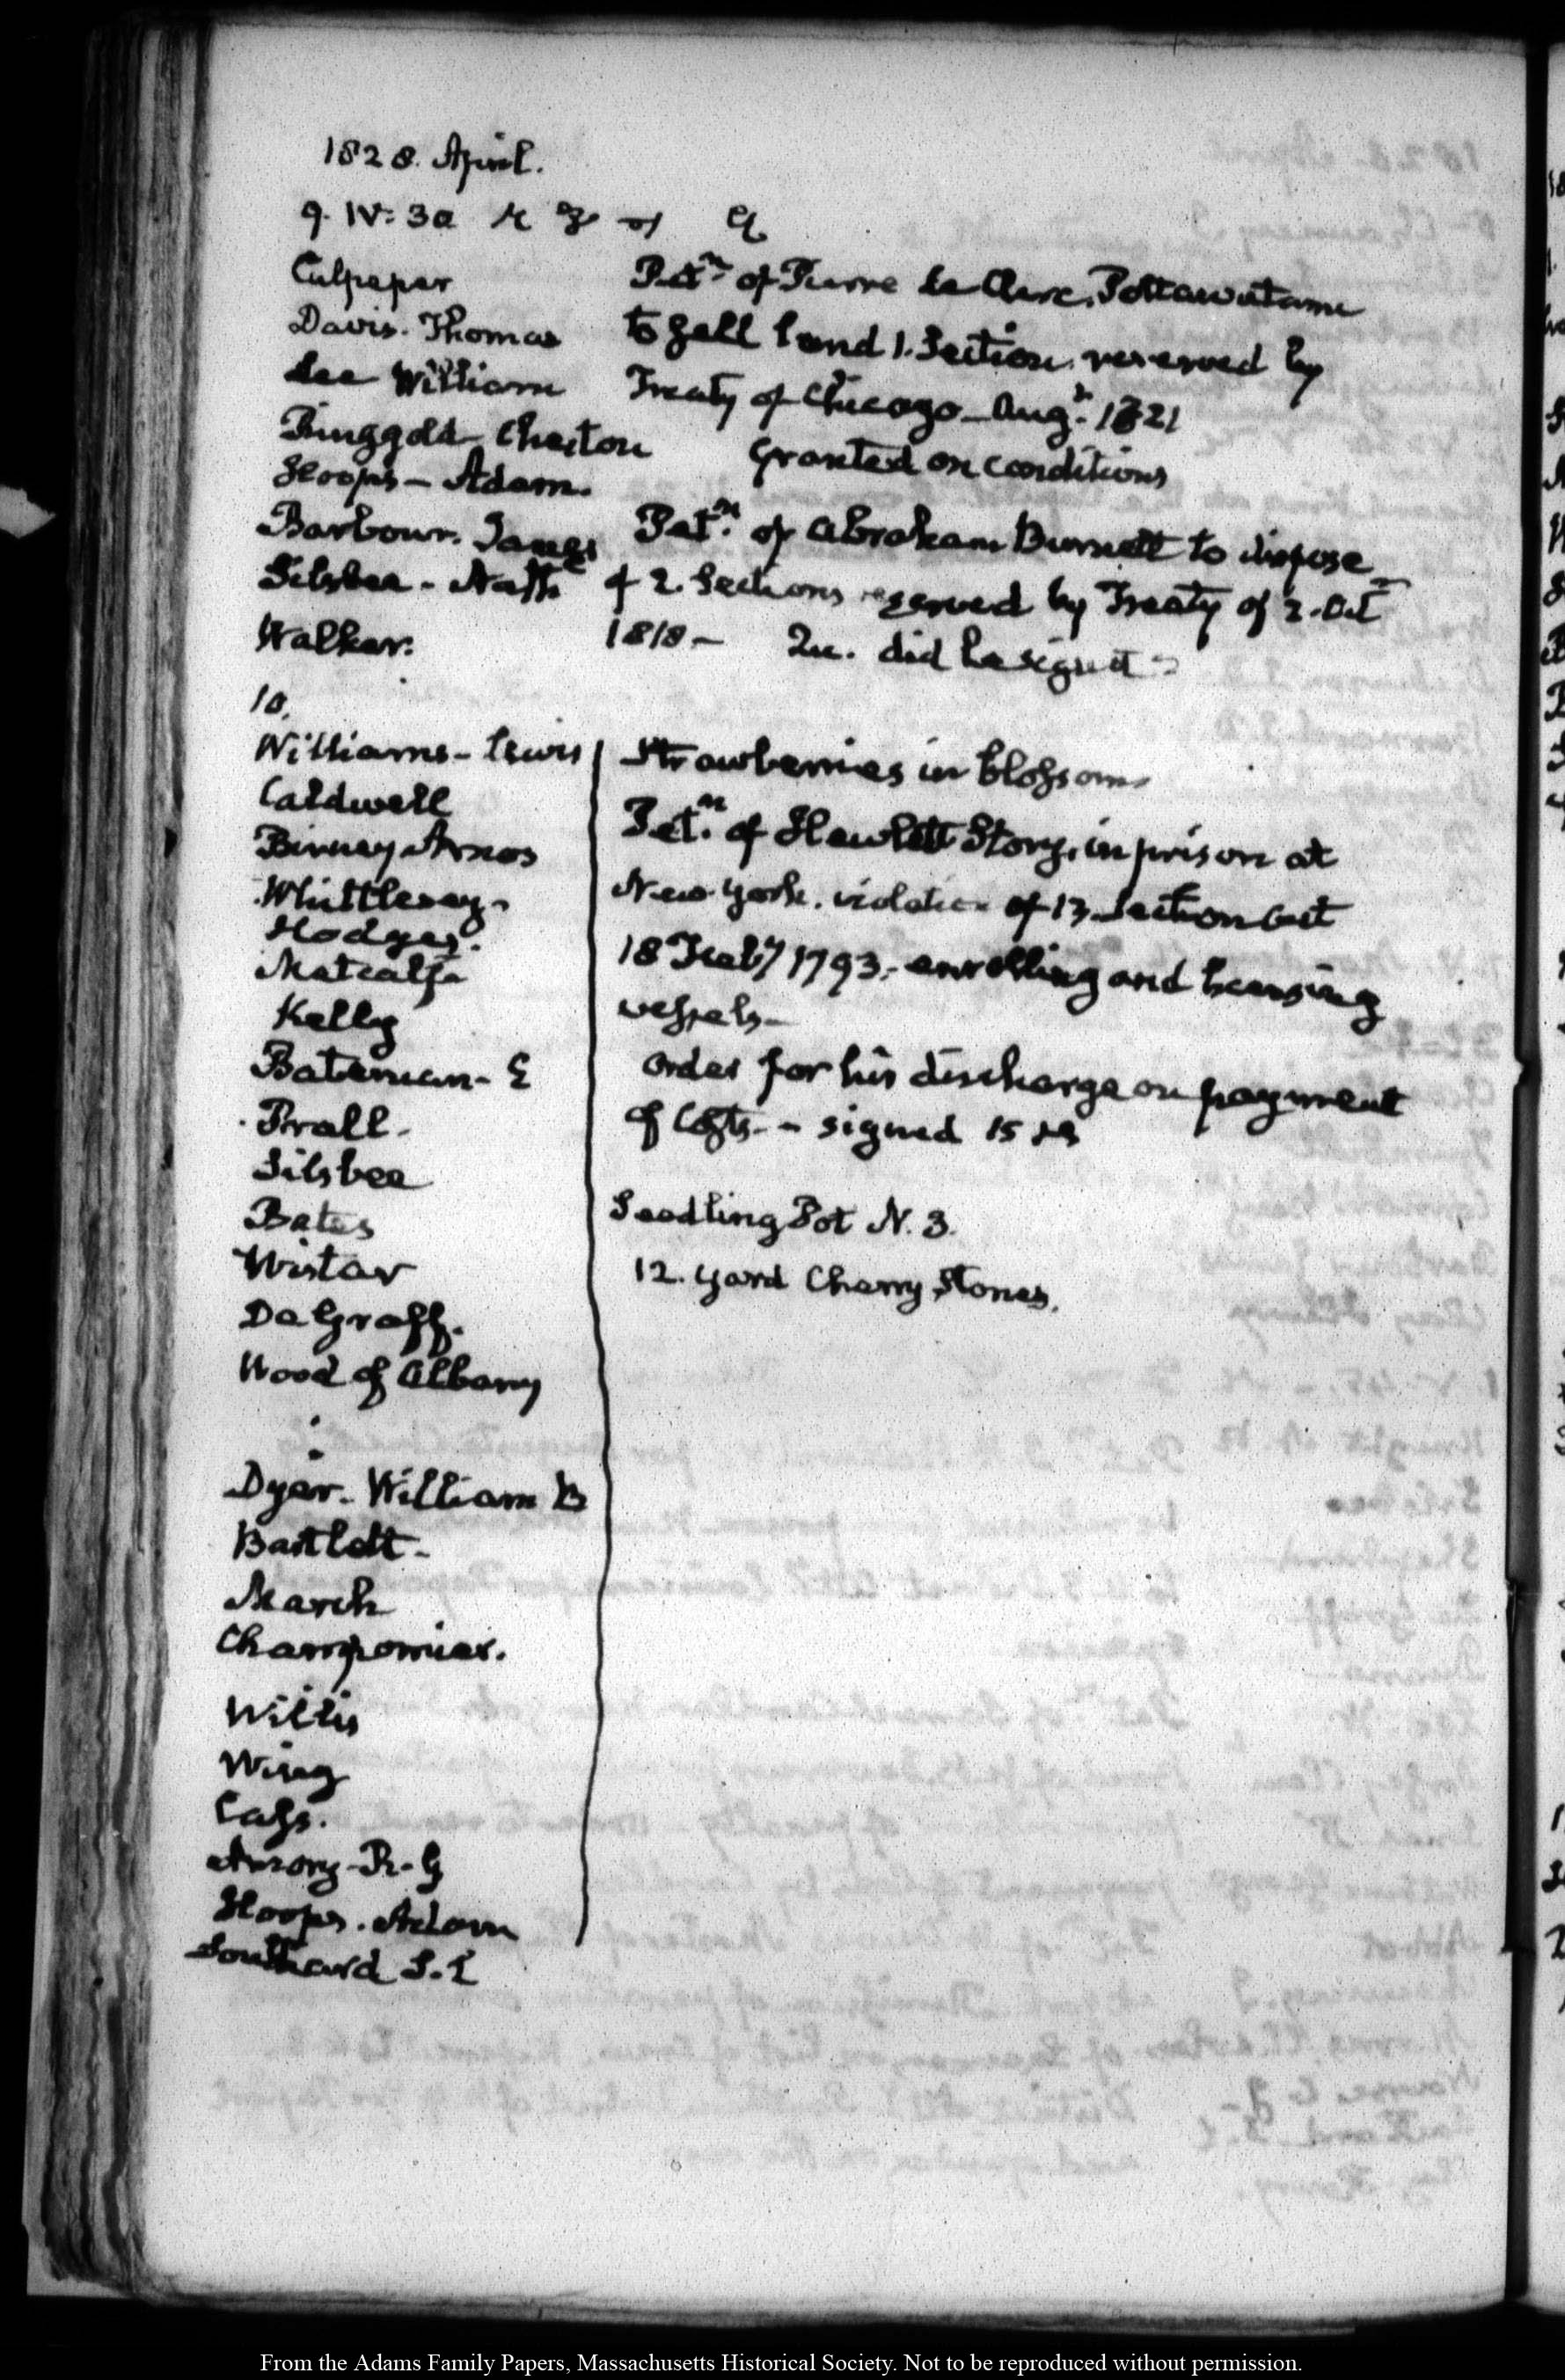 1828. April.
9. IV: 30
Culpeper
Petn. of Pierre Le Clerc, Pottawatamie
Davis. Thomas
to sell land 1. Section reserved by
Lee William
Treaty of Chicago - Aug. 1821
Ringgold Cheston
Granted on conditions
Hoops - Adam.
Barbour. James
Petn. of Abraham Burnett to dispose
Silsbee - Nathl
of 2. Sections reserved by Treaty of 2. Oct
Walker.
1818 - Qu. did he sign it
10.
Williams - Lewis
Strawberries in blossom
Caldwell
Petn. of Hewlett Story, in prison at
Binney Amos
New-York. violation of 13 Section Act
Whittlesey -
Hodges.
18 Feby 1793. enrolling and licensing
Metcalfe
vessels -
Kelly
Order for his discharge on payment
Bateman - E
of Costs. - signed 15
Prall.
Silsbee
Bates
Seedling Pot N. 3.
Wistar
12. yard Cherry Stones.
DeGraff.
Wood of Albany
Dyer. William B
Bartlett -
March
Champomier.
Willis
Wing
Cass.
Amory - R - G
Hoops. Adam
Southard S. L
From the Adams Family Papers, Massachusetts Historical Society. Not to be reproduced without permission.